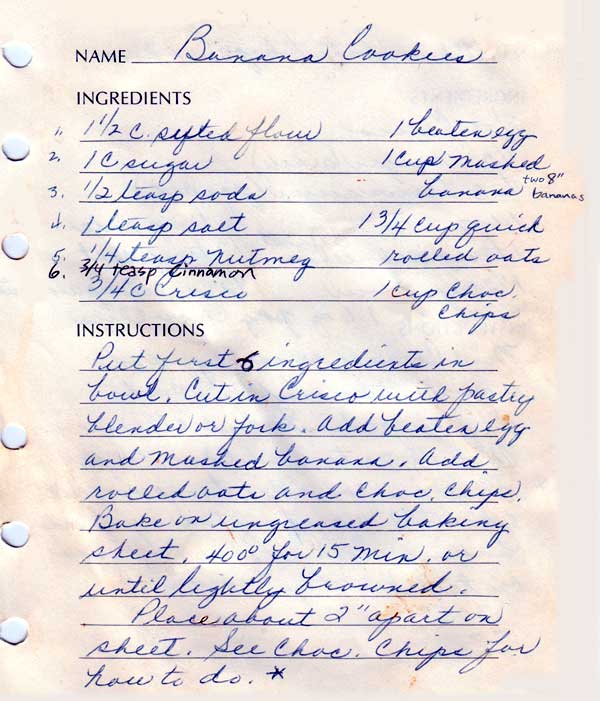 NAME Banana Cookies
INGREDIENTS
1. 1 1/2 C. syfted flour
2. 1 C sugar
3. 1/2 teasp soda
4. 1 teasp salt
5. 1/4 teasp nutmeg
6. 3/4 teasp Cinnamon
3/4 C Crisco
1 beaten egg
1 cup mashed
banana two 8" bananas
1 3/4 cup quick
rolled oats
1 cup Choc.
Chips
INSTRUCTIONS
Put first 6 ingredients in
bowl. Cut in Crisco with pastry
blender or fork. Add beaten egg
and mashed banana. Add
rolled oats and choc. chips.
Bake on ungreased baking
sheet. 400° for 15 min. or
until lightly browned.
Place about 2" apart on
sheet. See Choc. Chips for
how to do. *